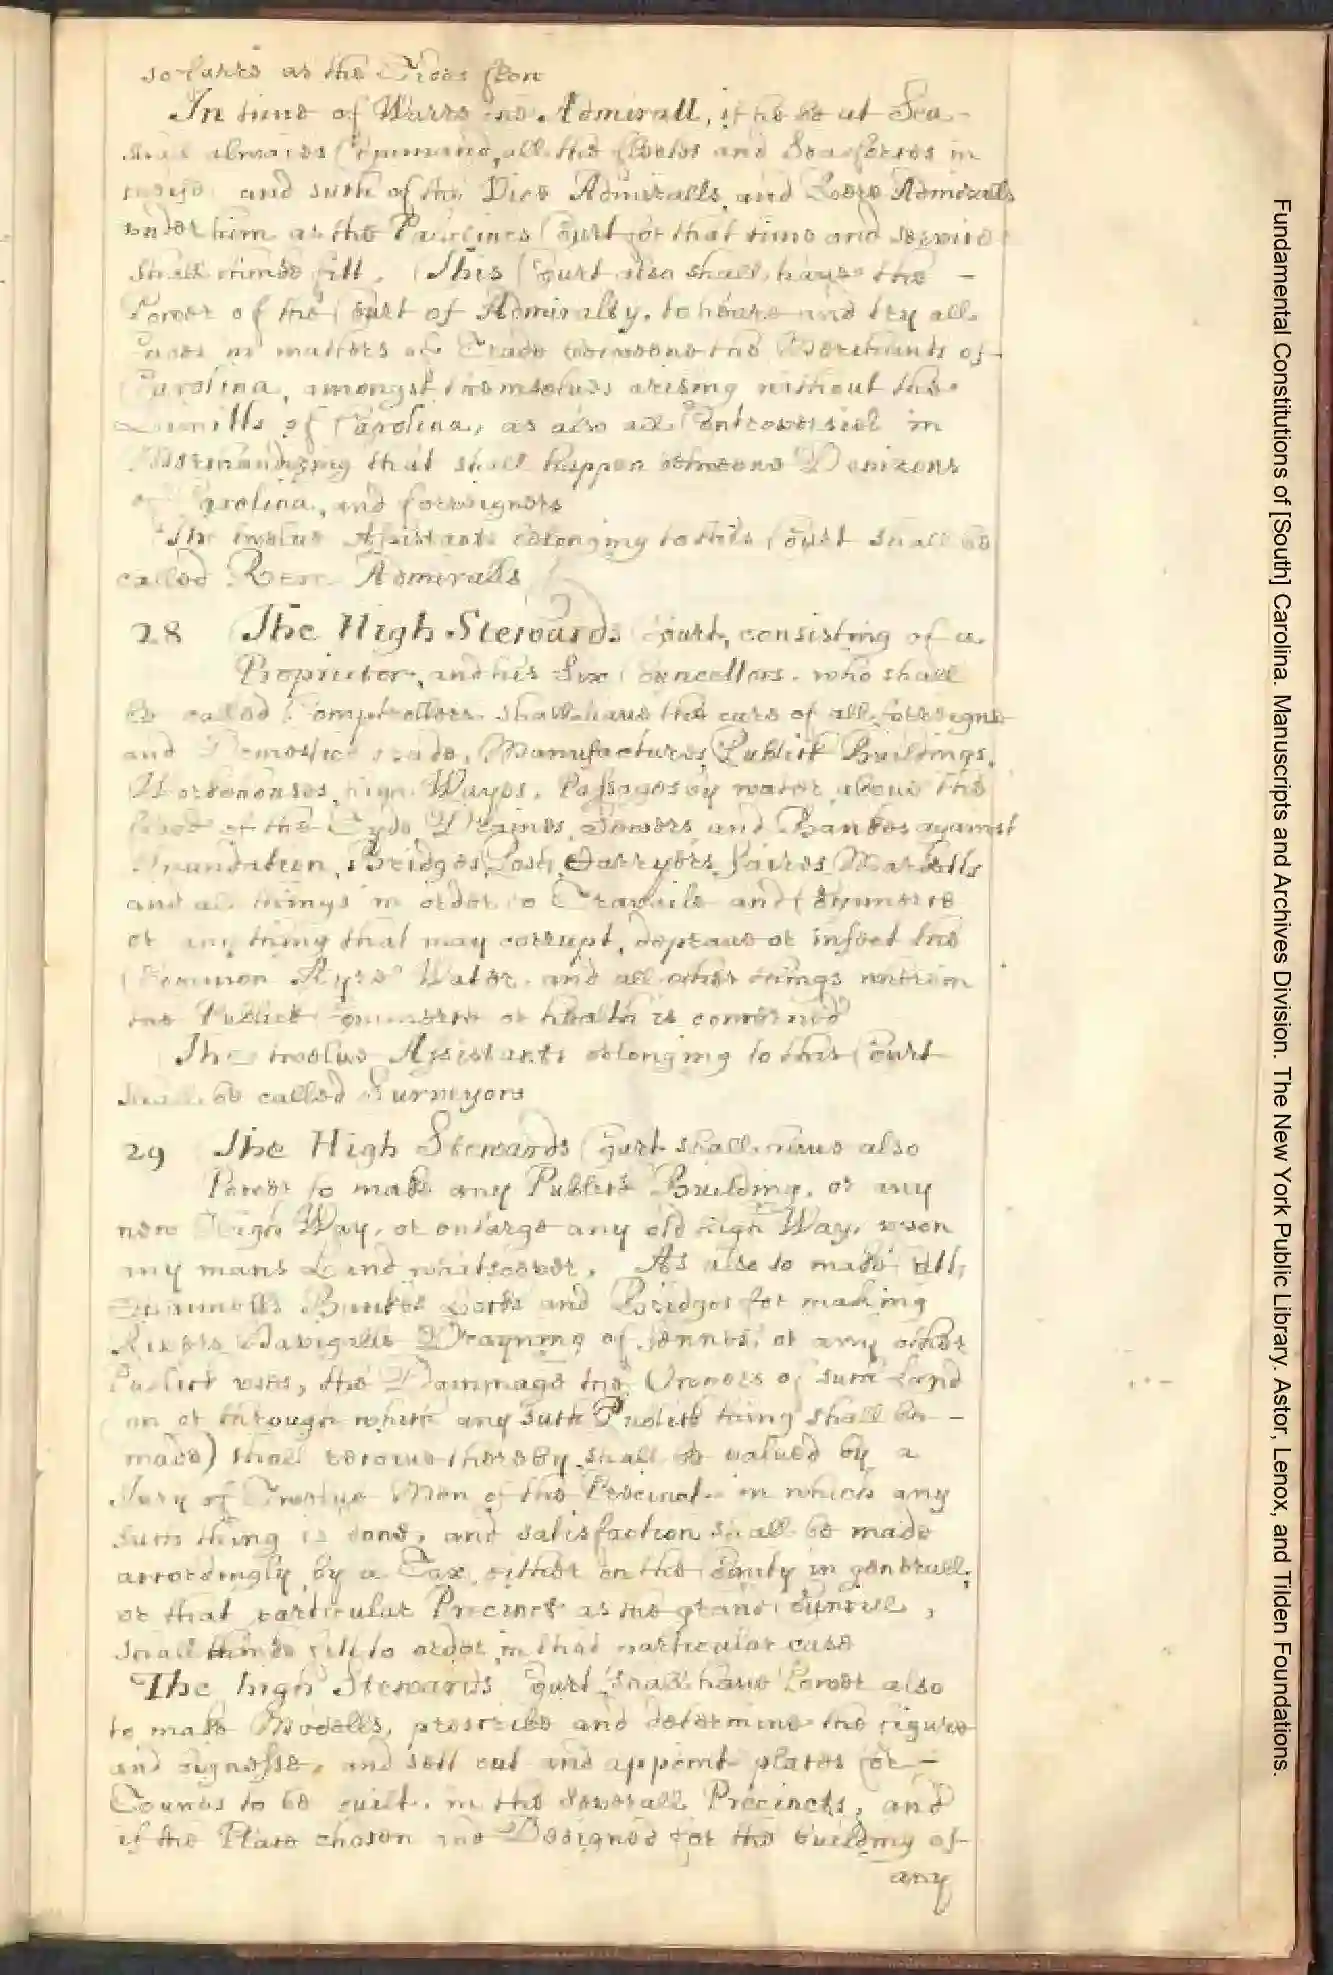 so farre as the Tides flow
In time of Warre the Admirall, if he be at Sea -
shall alwaies Command, all the fleetes and Seaforces in
and such of the Vice Admiralls, and Reere Admiralls
vnder him as the Palatines Court for that time and service
shall thinke fitt. This Court also shall have the -
Power of the Court of Admiralty, to heare and try all
Cases in matters of Trade betweene the Merchants of -
Carolina, amongst themselves arising without the
Limitts of Carolina, as also all Controversies in
Merchandizing that shall happen betweene Denizens
of Carolina, and forreigners
The twelve Assistants belonging to this Court shall be
called Rere Admiralls
28 The High Stewards Court, consisting of a
Proprietor, and his Six Councellors. who shall
be called Comptrollers. shall have the care of all forreigne
and Domestick trade, Manufactures, Publick Buildings,
Workehouses, high Wayes, Passages by water above the
flood of the Tyde, Draines, Sewers, and Bankes against
Inundation, Bridges, Posts, Carryers, Faires, Marketts
and all things in order to Travaile and Commerce
or any thing that may corrupt, deprave or infect the
Common Ayre Water, and all other things wherein
the Publick Commerce or health is concerned
The twelve Assistants belonging to this Court
shall be called Surveyors
29 The High Stewards Court shall have also
Power to make any Publick Building, or any
new High Way, or enlarge any old high Way, vpon
any mans Land whatsoever, As also to make all,
Channells Bankes Locks and Bridges for making
Rivers Navigable Drayning of fennes, or any other
Publick vses, the Dammage the Owners of such Land
(on or through which any such Publick thing shall be -
made) shall receive thereby shall be valued by a
Jury of Twelve Men of the Precinct in which any
such thing is done, and satisfaction shall be made
accordingly by a Tax, either on the County in generall,
or that particular Precinct as the grand Councill,
shall thinke fitt to order in that particular case
The high Stewards Court shall have Power also
to make Modells, prescribe and determine the figure
and bignesse, and sett out and appoint places for -
Townes to be built, in the severall Precincts, and
if the Place chosen and Designed for the building of -
any
Fundamental Constitutions of [South] Carolina. Manuscripts and Archives Division. The New York Public Library. Astor, Lenox, and Tilden Foundations.